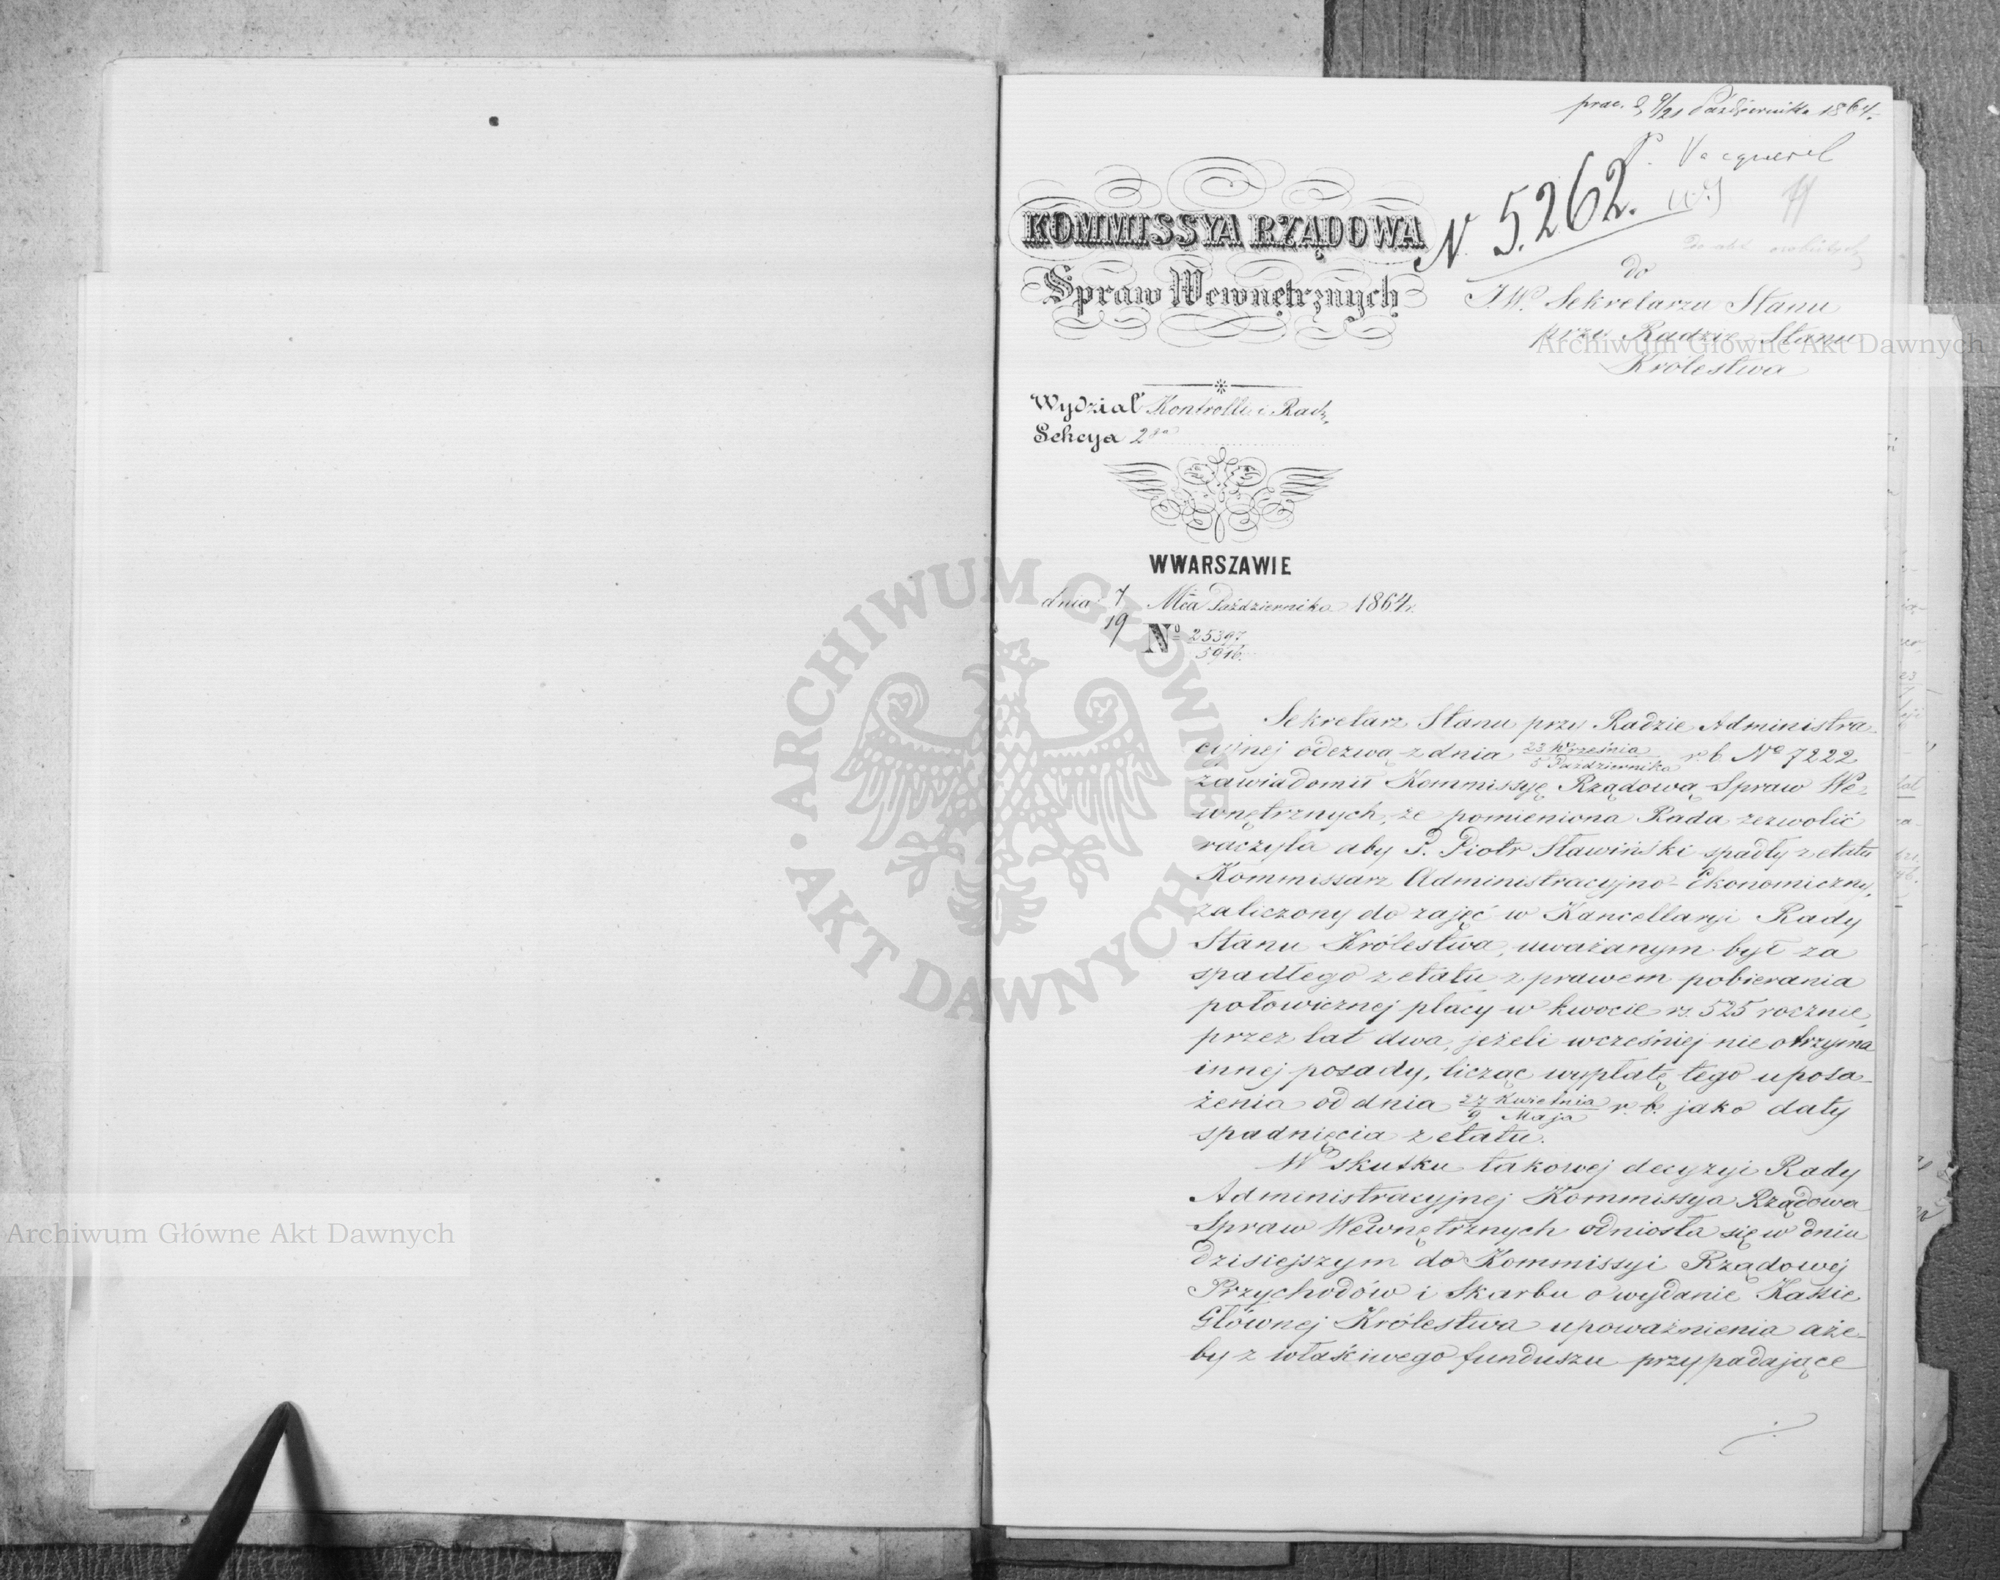 prae. d 9/21 Października 1864.
P. Vacquerel
N 5.262.
do
J.W. Sekretarza Stanu
przy Radzie Stanu
Królestwa
KOMMISSYA RZĄDOWA
Spraw Wewnętrznych
Wydział Kontrolli i Rach.
Sekcya 2ga
W WARSZAWIE
dnia 7/19 Mca Października 1864 r.
No 25397/5916.
Sekretarz Stanu przy Radzie Administra-
cyjnej odezwą z dnia 23 Września/5 Października r. b. No 7222
zawiadomił Kommissyę Rządową Spraw We-
wnętrznych, że pomieniona Rada zezwolić
raczyła aby P. Piotr Sławiński spadły z etatu
Kommissarz Administracyjno-Ekonomiczny,
zaliczony do zajęć w Kancellaryi Rady
Stanu Królestwa, uważanym był za
spadłego z etatu z prawem pobierania
połowicznej płacy w kwocie rs. 525 rocznie,
przez lat dwa, jeżeli wcześniej nie otrzyma
innej posady, licząc wypłatę tego uposa-
żenia od dnia 27 Kwietnia/9 Maja r. b. jako daty
spadnięcia z etatu.
W skutku takowej decyzyi Rady
Administracyjnej Kommissya Rządowa
Spraw Wewnętrznych odniosła się w dniu
dzisiejszym do Kommissyi Rządowej
Przychodów i Skarbu o wydanie Kassie
Głównej Królestwa upoważnienia aże-
by z właściwego funduszu przypadające
Archiwum Główne Akt Dawnych
Archiwum Główne Akt Dawnych
ARCHIWUM GŁÓWNE · AKT DAWNYCH ·